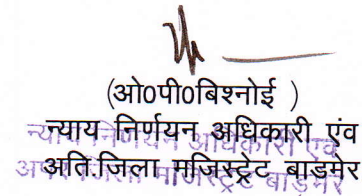 (ओ0पी0बिश्नोई )
न्याय निर्णयन अधिकारी एंव
अति.जिला मजिस्ट्रेट बाडमेर